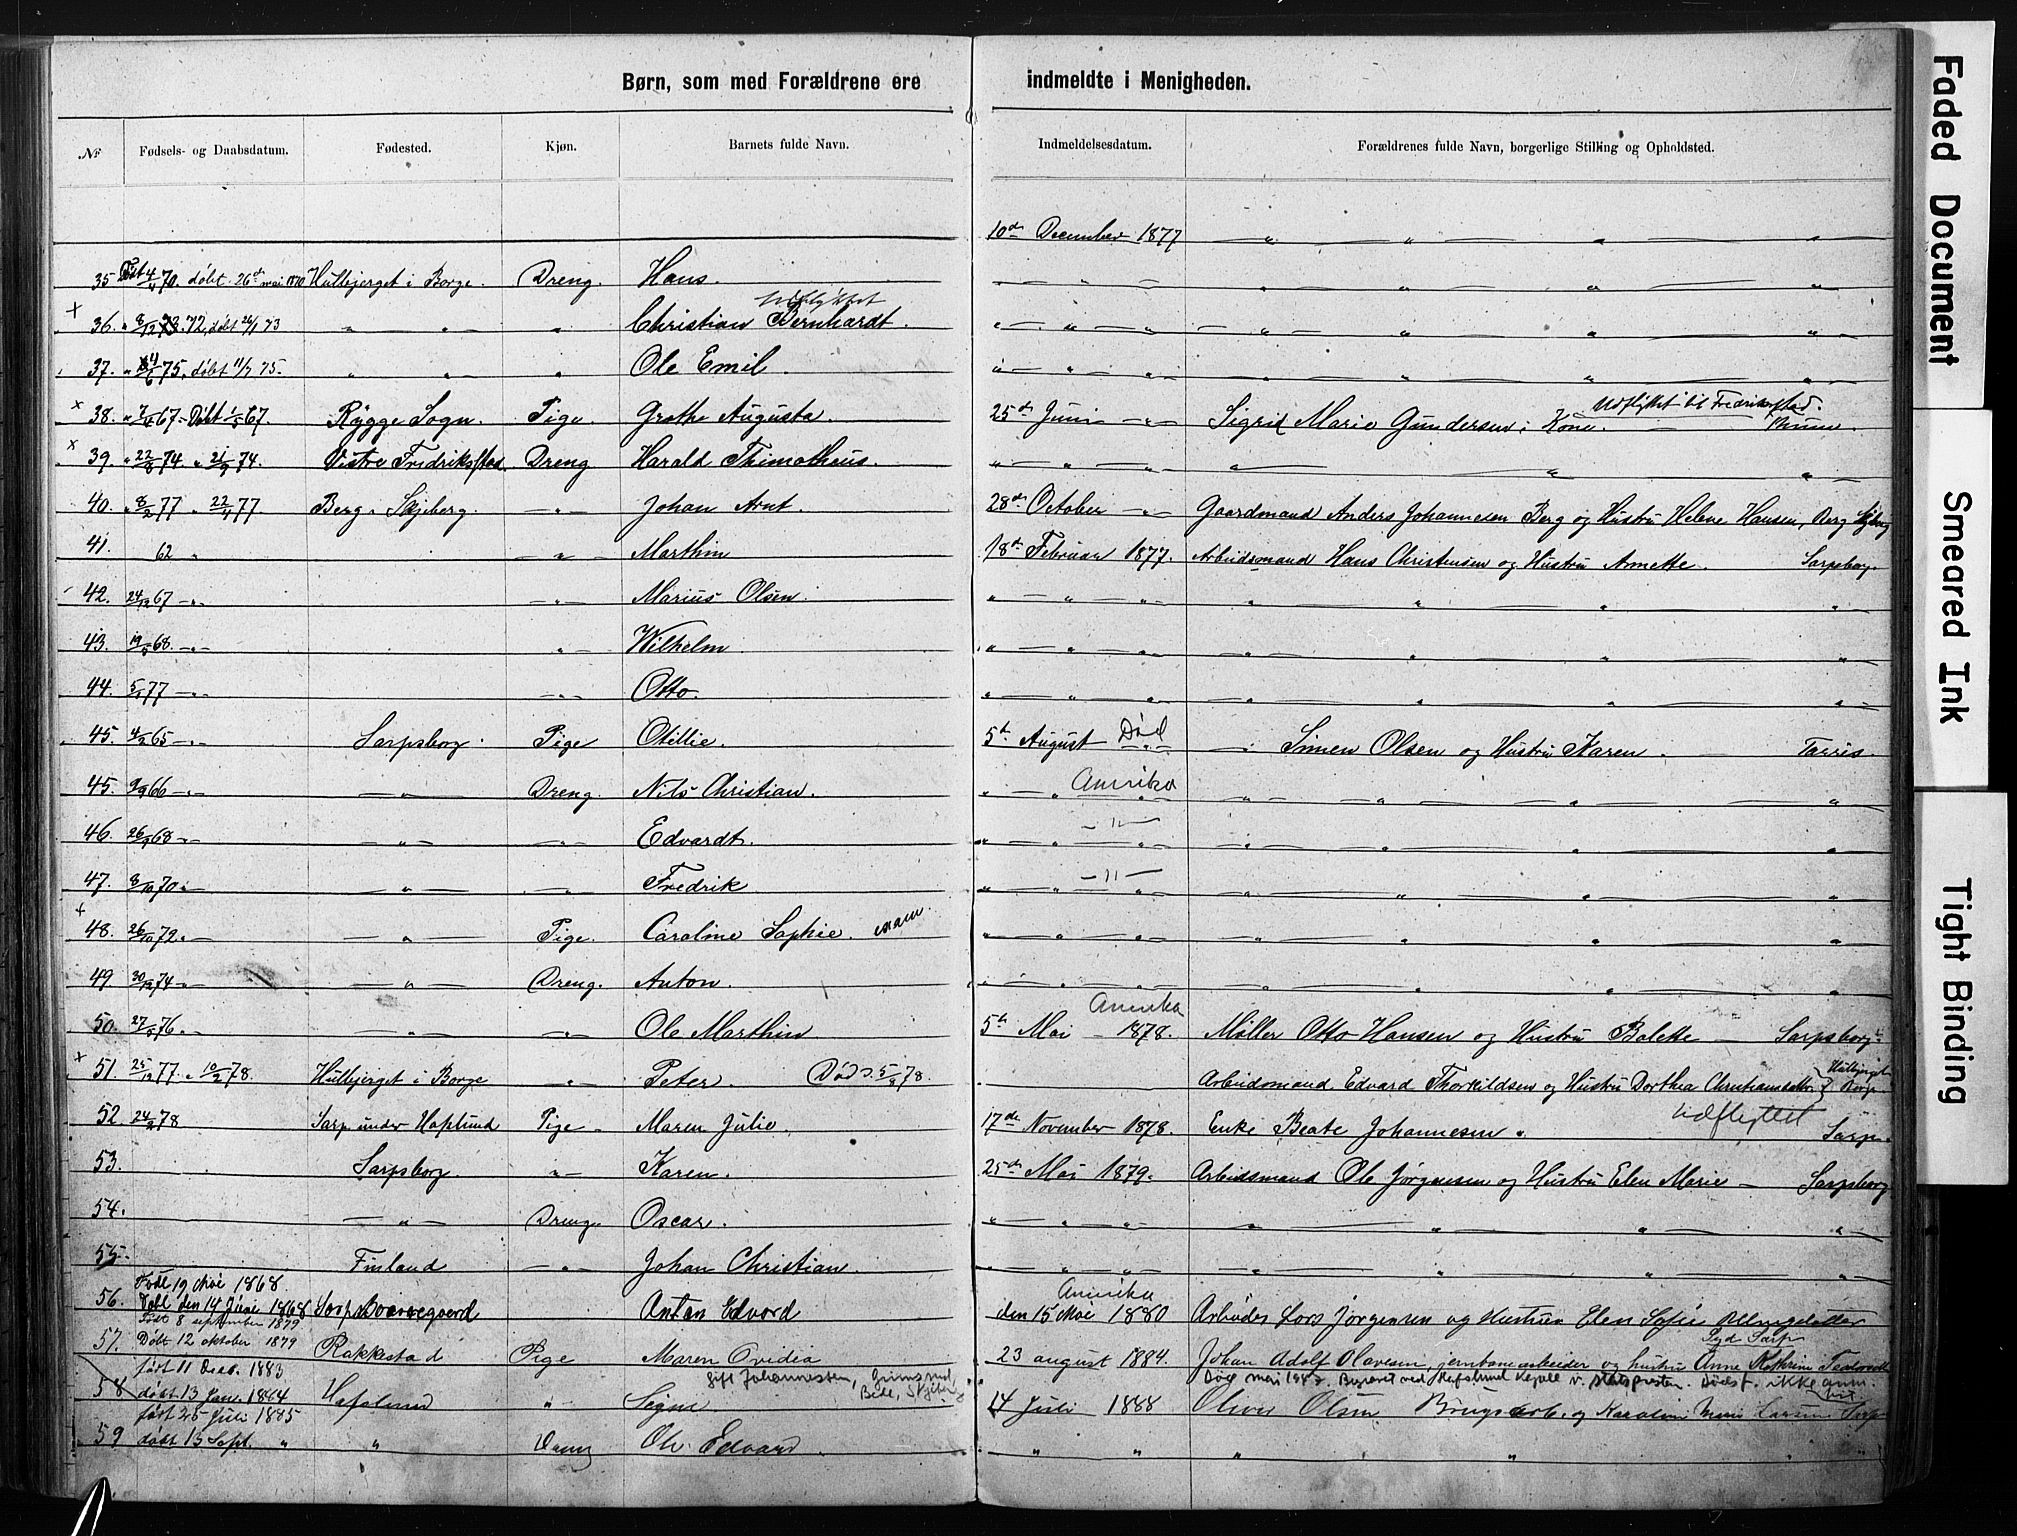 Børn, som med Forældrene ere indmeldte i Menigheden.
№ Fødsels- og Daabsdatum. Fødested. Kjøn. Barnets fulde Navn. Indmeldelsesdatum. Forældrenes fulde Navn, borgerlige Stilling og Opholdsted.
10de December 1877 — " — " — " — "
35 Født 4/4 70. døbt 26de mai 1870 Hulbjerget i Borge. Dreng. Hans.
Udflyttet
× 36. " 8/12 72, døbt 26/1 73 " " " Christian Bernhardt.
37. " 4/6 75, døbt 11/7 75. " " " Ole Emil.
Udflyttet til Fredrikstad.
× 38. " 7/4 67. Døbt 1/5 67. Rygge Sogn. Pige. Grethe Augusta. 25de Juni — " — Sigrid Marie Gundersen, Kone.
× 39. " 22/8 74 " 21/9 74. Vestre Fredrikstad Dreng Harald Thimotheus.
40. " 8/2 77 " 22/4 77 Berg i Skjeberg. — " — Johan Arnt. 28de October — " — Gaardmand Anders Johannesen Berg og Hustru Helene Hansen, Berg Skjeberg
41. 62 " — " — Marthin 18de Februar 1877. Arbeidsmand Hans Christensen og Hustru Annette. Sarpsborg.
42. 24/12 67 — " — — " — Marius Olsen.
43. 19/5 68. — " — " — Wilhelm
44. 5/1 77 — " — — " — Otto.
Død
45. 4/2 65 — " — Sarpsborg. Pige Otillie. 5te August — " — Simen Olsen og Hustru Karen.
Amerika
45. 9/9 66 — " — — " — Dreng. Nils Christian.
— " —
46. 26/9 68 — " — — " — — " — Edvardt.
— " —
47. 8/10 70 " — — " — — " — Fredrik
× 48. 26/10 72. " — — " — Pige. Caroline Sophie
49 30/12 74 — " — — " — Dreng. Anton.
Amerika
50. 27/5 76. — " — — " — — " — Ole Marthin 5te Mai — 1878. Møller Otto Hansen og Hustru Bolette — Sarpsborg.
× 51. 25/12 77. " 10/2 78. Hulbjerget i Borge " — Peter. Død d. 5/8 78. Arbeidsmand Edvard Thorkildsen og Hustru Dorthea Christiansdtr. Hulbjerget Borge
Udflyttet
52. 24/2 78 Sarp under Haflund Pige — Maren Julie. 17de November 1878. Enke Beate Johannesen. Sarp.
53. Sarpsborg. " — Karen. 25de Mai 1879. Arbeidsmand Ole Jørgensen og Hustru Elen Marie — Sarpsborg
54. — " — Dreng. Oscar.
55. Finland — " — Johan Christian.
Født 19 Mai 1868 Amerika
56. Døbt den 14 Juni 1868 Anton Edvard den 15 Mai 1880 Arbeider Lars Jørgensen og Hustru Elen Sofie
Født 8 september 1879 Syd Sarp
57. Døbt 12 oktober 1879 Rakkestad Pige Maren Ovidia 23 august 1884. Johan Adolf Olavesen, jernbanearbeider og hustru Anne Kathrine
født 11 Decb. 1883 gift Johannessen,
58 døbt 13 Janr. 1884 Hafslund " Signe. 14 Juli 1888 Oliver Olsen Brugsarb. og Karoline Marie Larsen Sarp
født 25 Juli 1885
59 døbt 13 Sept. " " Dreng Ole Edvard.
Faded Document
Smeared Ink
Tight Binding